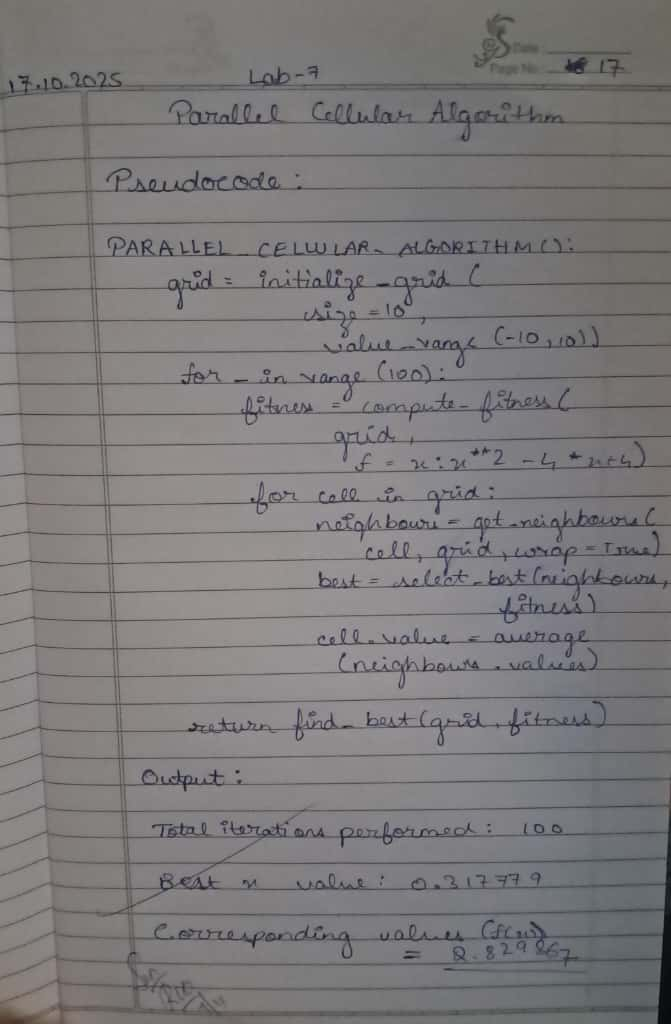 Date
Page No. 17
17.10.2025 Lab-7
Parallel Cellular Algorithm
Pseudocode:
PARALLEL_CELLULAR_ALGORITHM():
grid = initialize_grid (
size = 10,
value_range (-10, 10))
for _ in range (100):
fitness = compute_fitness (
grid,
f = x: x**2 - 4 * x + 4)
for cell in grid:
neighbours = get_neighbours (
cell, grid, wrap = True)
best = select_best (neighbours,
fitness)
cell.value = average
(neighbours.values)
return find_best (grid, fitness)
Output:
Total iterations performed: 100
Best x value: 0.317779
Corresponding values (f(x))
= 2.829867